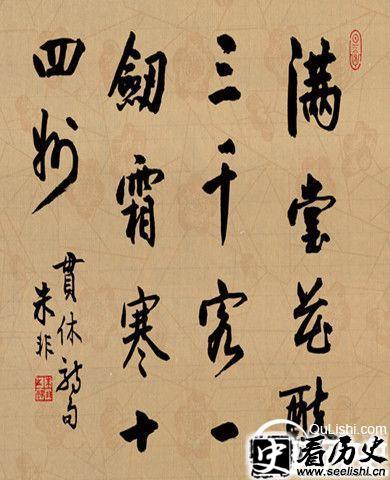 满堂花醉
三千客一
劍霜寒十
四州
貫休诗句
朱非
QuLishi.com
史 看历史
www.seelishi.com